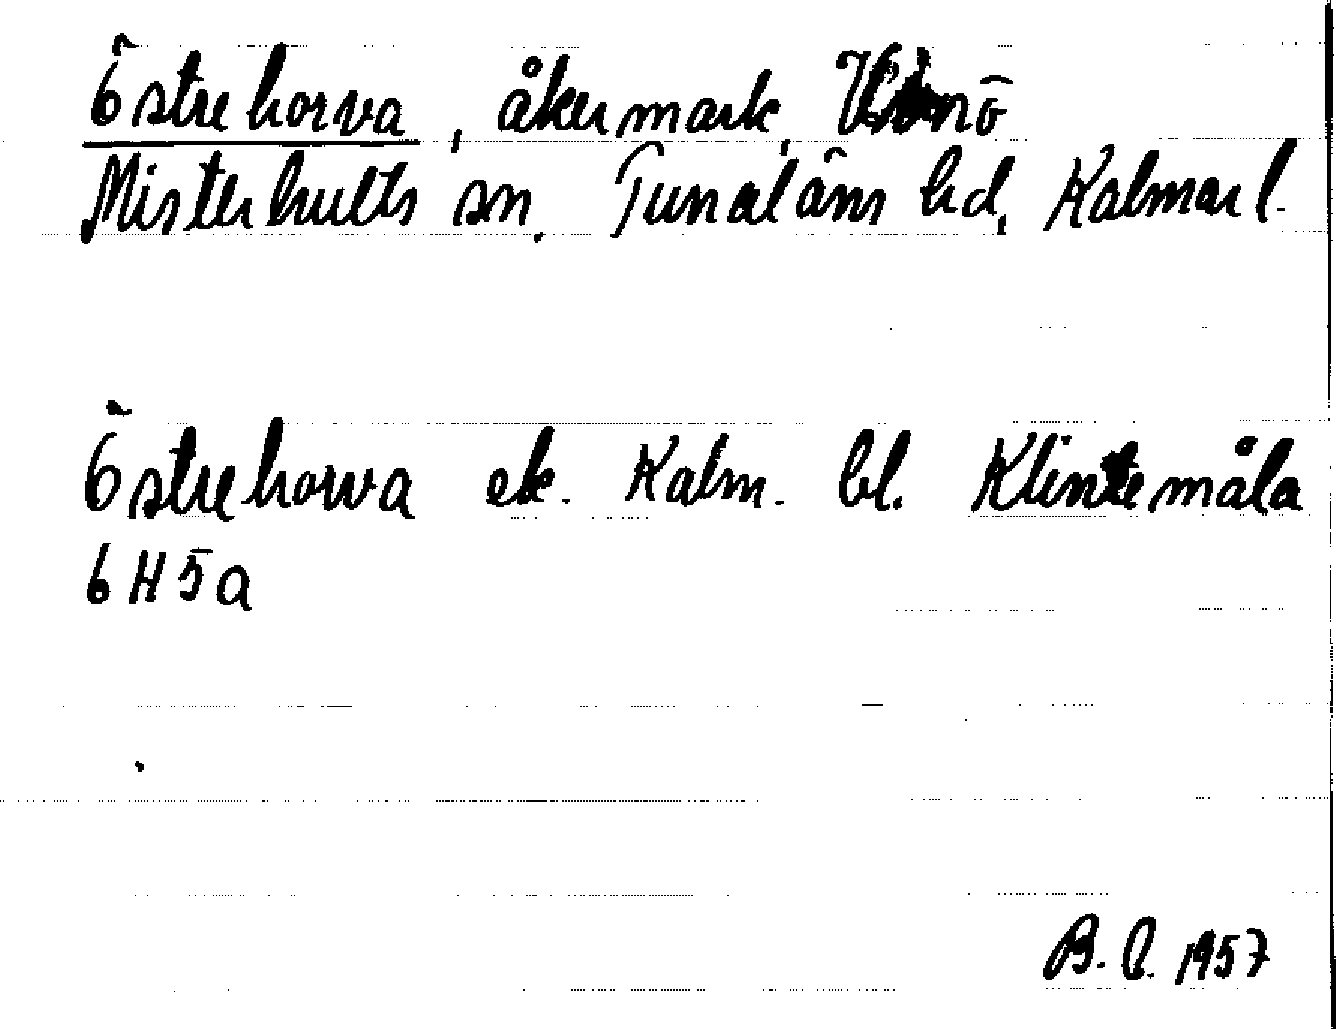 Östrehorva, åkermark, Vinö
Misterhults sn, Tunaläns hd, Kalmar l.
Östrehorva ek. Kalm. bl. Klintemåla
6 H 5 a
B. L. 1957